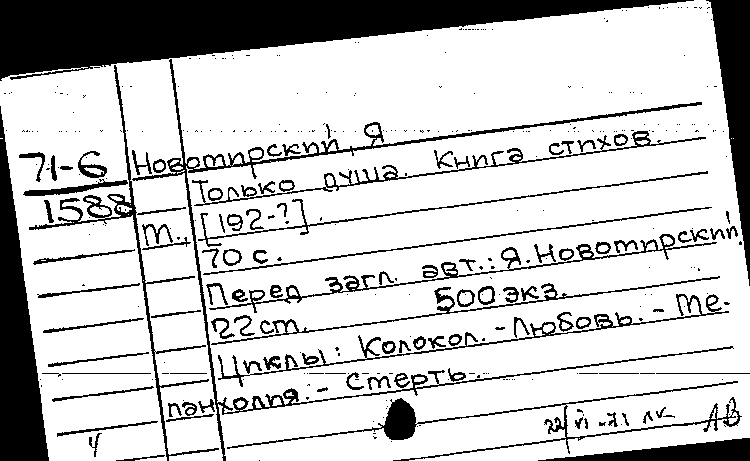 71-6
1588
Новомирский, Я
Только душа. Книга стихов.
М., [192-?].
70 с.
Перед загл. авт.: Я. Новомирский.
22 см. 500 экз.
Циклы: Колокол. - Любовь. - Ме-
ланхолия. - Смерть.
4
22/VI-71 ЛК АВ